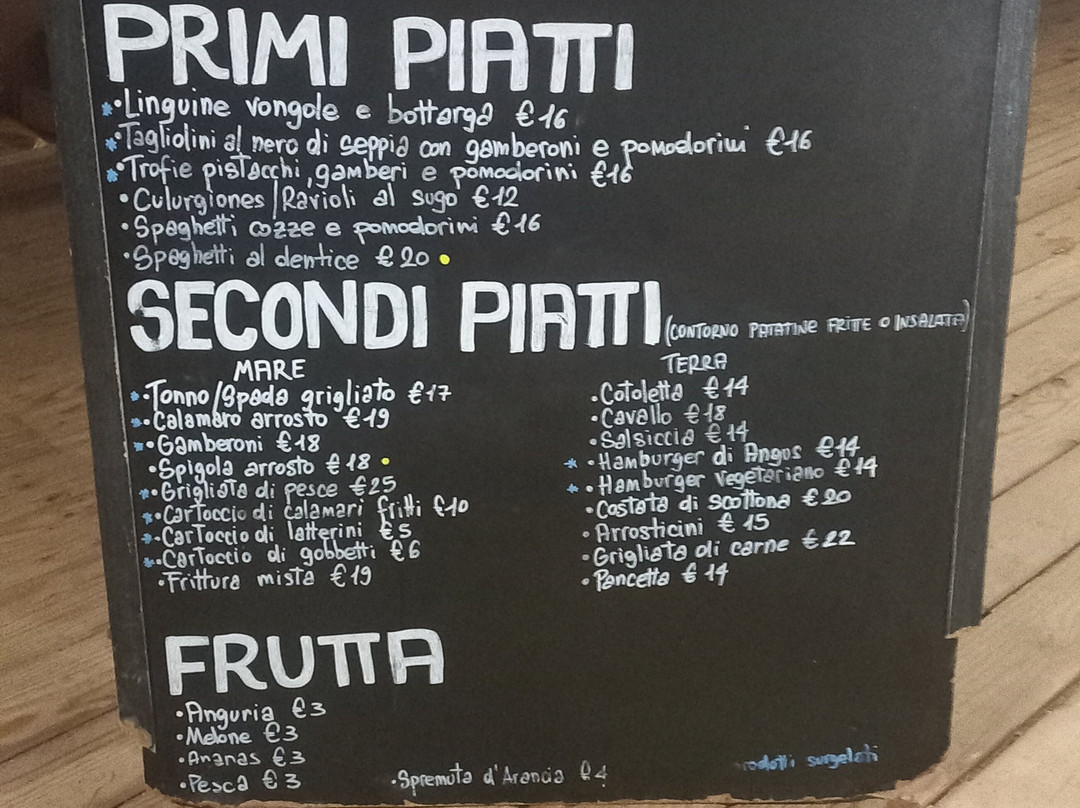 PRIMI PIATTI
*•Linguine vongole e bottarga €16
*•Tagliolini al nero di seppia con gamberoni e pomodorini €16
*•Trofie pistacchi, gamberi e pomodorini €16
•Culurgiones/Ravioli al sugo €12
•Spaghetti cozze e pomodorini €16
•Spaghetti al dentice €20 •
SECONDI PIATTI (CONTORNO PATATINE FRITTE O INSALATA)
MARE
*•Tonno/Spada grigliato €17
*•Calamaro arrosto €19
*•Gamberoni €18
•Spigola arrosto €18 •
*•Grigliata di pesce €25
*•Cartoccio di calamari fritti €10
*•Cartoccio di latterini €5
*•Cartoccio di gobbetti €6
•Frittura mista €19
TERRA
•Cotoletta €14
•Cavallo €18
•Salsiccia €14
*•Hamburger di Angus €14
*•Hamburger vegetariano €14
•Costata di scottona €20
•Arrosticini €15
•Grigliata di carne €22
•Pancetta €14
FRUTTA
•Anguria €3
•Melone €3
•Ananas €3
•Pesca €3
•Spremuta d'Arancia €4
rodotti surgelati